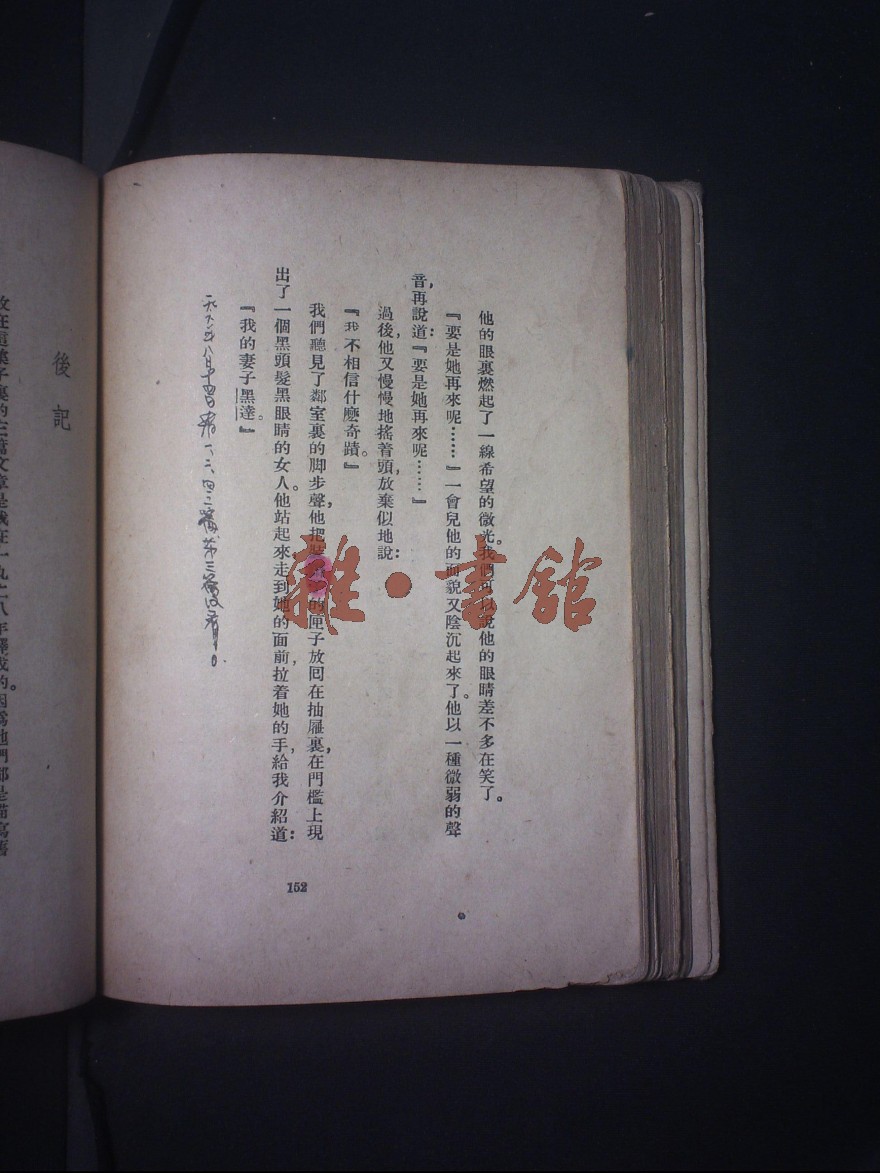 他的眼裏燃起了一線希望的微光。我們可以說他的眼睛差不多在笑了。
『要是她再來呢……』一會兒他的面貌又陰沉起來了。他以一種微弱的聲
音，再說道：『要是她再來呢……』
過後，他又慢慢地搖着頭，放棄似地說：
『我不相信什麽奇蹟。』
我們聽見了鄰室裏的脚步聲，他把裝的匣子放囘在抽屜裏，在門檻上現
出了一個黑頭髮黑眼睛的女人。他站起來走到她的面前，拉着她的手，給我介紹道：
『我的妻子黑達。』
八月十四日看一、二、四三篇，第三篇沒看
152
後記
在這集子裏的三篇文章是我在一九二八年譯成的。因爲他們都是描寫舊
雜·書舘